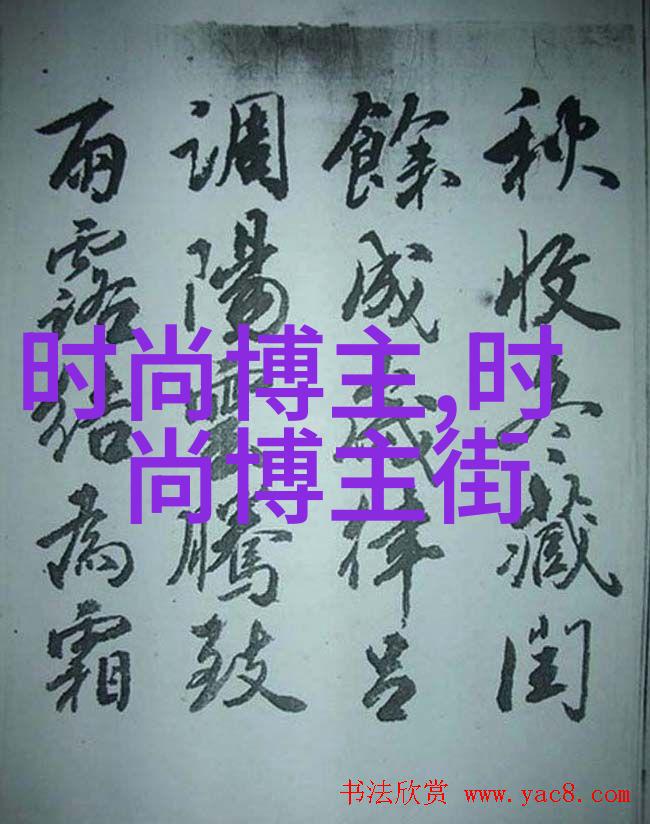 秋收冬藏閏
餘成歲律呂
調陽雲騰致
雨露結為霜
时尚博主,时
尚博主街
书法欣赏 www.yac8.com